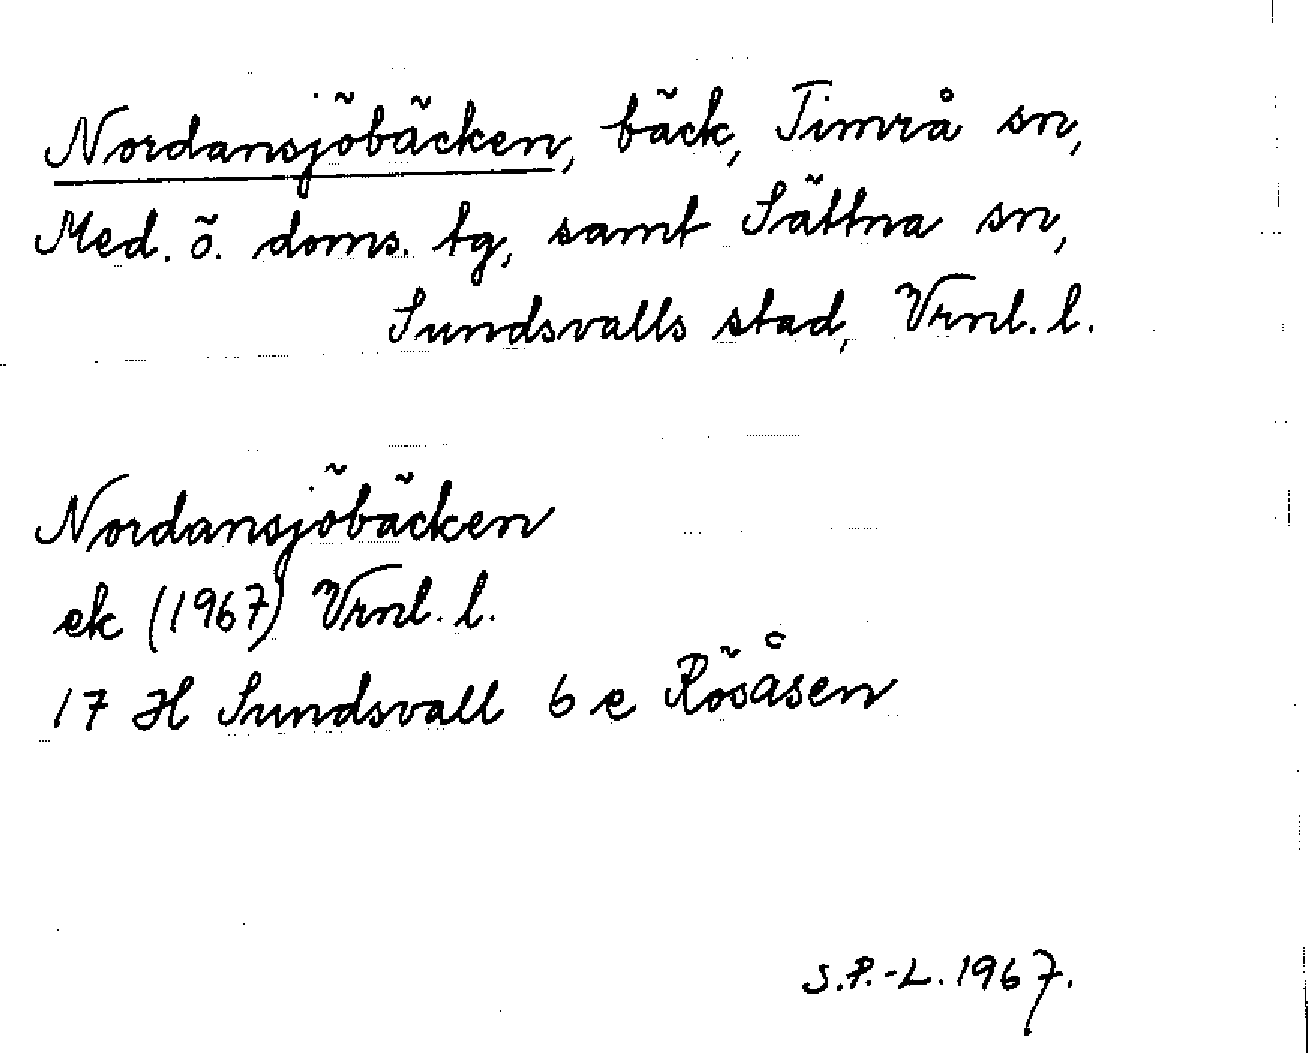 Nordansjöbäcken, bäck, Timrå sn,
Med. ö. doms. tg, samt Sättna sn,
Sundsvalls stad, Vrnl. l.
Nordansjöbäcken
ek (1967) Vrnl. l.
17 H Sundsvall 6 e Rösåsen
S.P.-L. 1967.